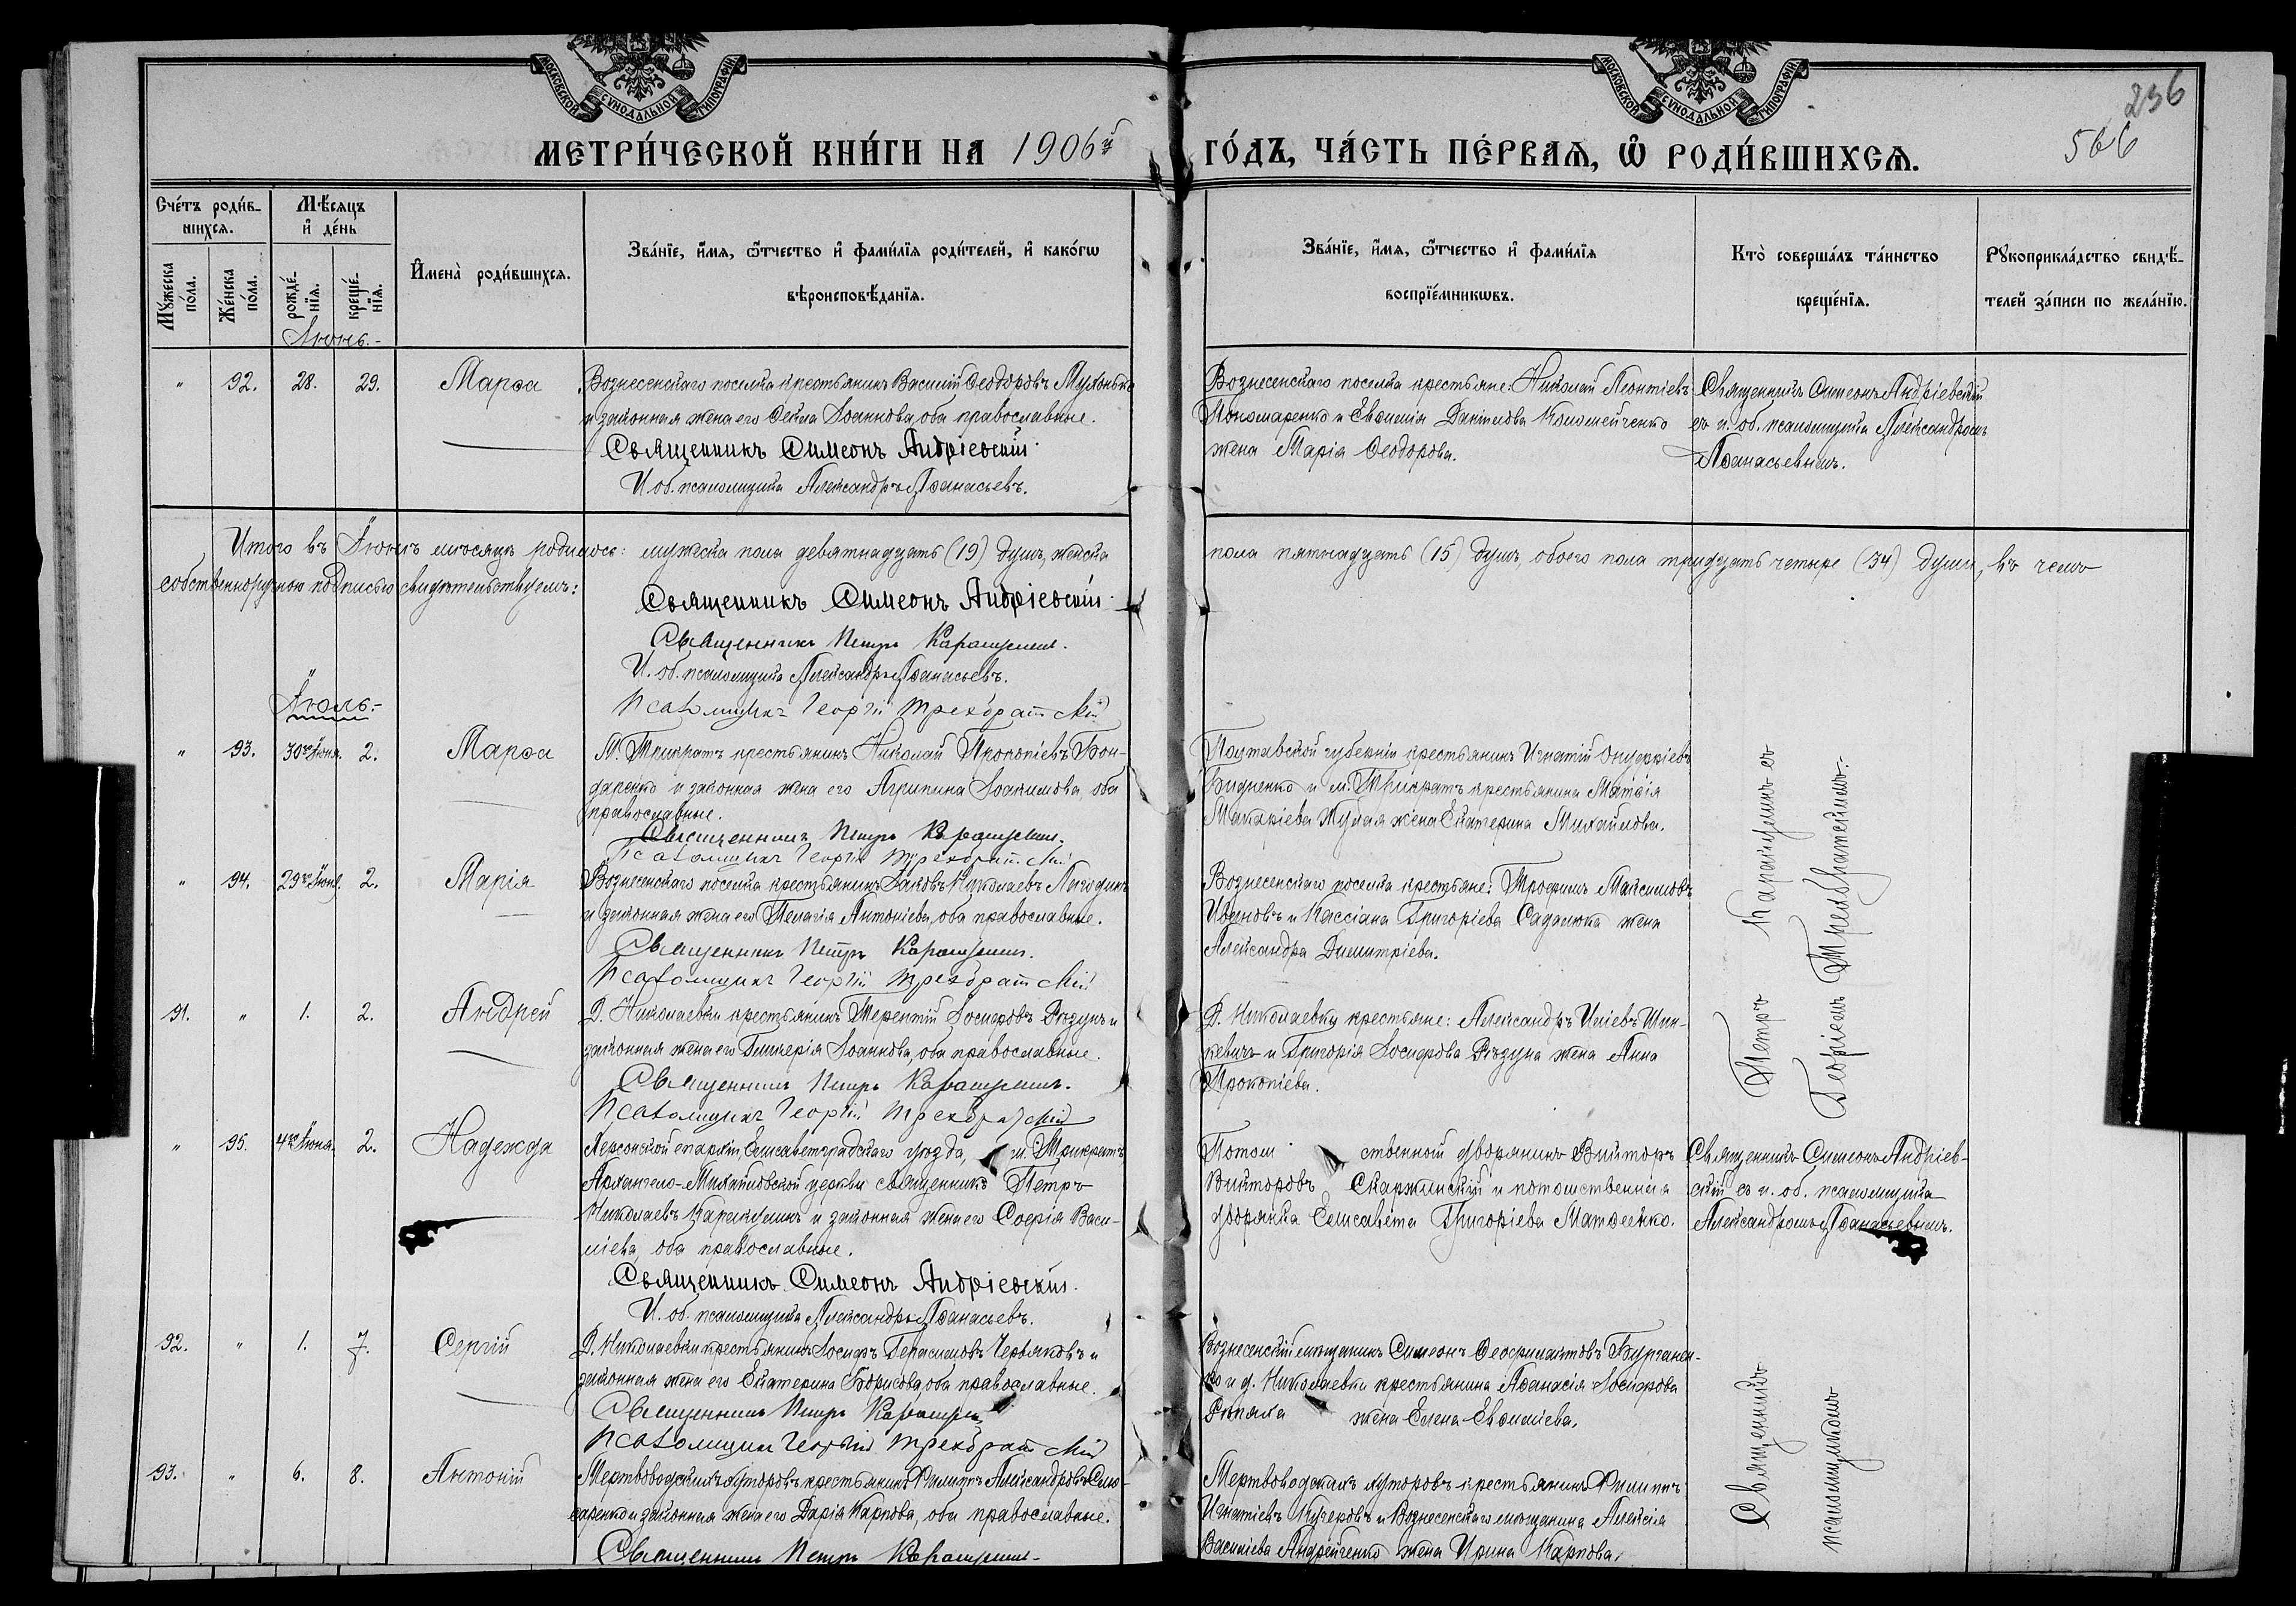 МОСКОВСКОЙ СѴНОДАЛЬНОЙ ТИПОГРАФІИ
МОСКОВСКОЙ СѴНОДАЛЬНОЙ ТИПОГРАФІИ
236
566
МЕТРИ́ЧЕСКОЙ КНИ́ГИ НА 1906й ГО́ДЪ, ЧА́СТЬ ПЕ́РВАѦ, Ѿ РОДИ́ВШИХСѦ.
Сче́тъ роди́в-
шихсѧ.
Мꙋ́жеска по́ла.
Же́нска по́ла.
Мѣ́сяцъ и҆ де́нь
рожде́-нїѧ.
креще́-нїѧ.
И҆мена̀ роди́вшихсѧ.
Зва́нїе, и҆́мѧ, ѻ҆́тчество и҆ фами́лїѧ роди́телей, и҆ како́гѡ
вѣроисповѣ́данїѧ.
Зва́нїе, и҆́мѧ, ѻ҆́тчество и҆ фами́лїѧ
воспрїе́мникѡвъ.
Кто̀ соверша́лъ та́инство
креще́нїѧ.
Рꙋкоприкла́дство свидѣ́-
телей за́писи по жела́нїю.
Іюнь.-
" 92. 28. 29. Марѳа
Вознесенскаго поселка крестьянинъ Василій Ѳеодоровъ
и законная жена его Ѳекла Іоаннова, оба православные.
Священникъ Симеонъ Андріевскій.
И. об. псаломщика Александръ Аѳанасьевъ.
Вознесенскаго поселка крестьяне: Николай Леонтіевъ
Пономаренко и Евѳимія Даніилова Коломейченко
жена Марія Ѳеодорова.
Священникъ Симеонъ Андріевскій
съ и. об. псаломщика Александромъ
Аѳанасьевымъ.
Итого въ Іюнѣ мѣсяцѣ родилось: мужеска пола девятнадцать (19) душъ, женска пола пятнадцать (15) душъ, обоего пола тридцать четыре (34) души, въ чемъ
собственноручною подписью свидѣтельствуемъ:
Священникъ Симеонъ Андріевскій.
Священникъ Петръ Каращукинъ.
И. об. псаломщика Александръ Аѳанасьевъ.
Псаломщикъ Георгій Трехбратскій
Іюль.-
" 93. 30го Іюня. 2. Марѳа
М. Трикратъ крестьянинъ Николай Прокопіевъ Бон-
даренко и законная жена его Агрипина Іоакимова, оба
православные.
Священникъ Петръ
Псаломщикъ Георгій Трехбратскій
Полтавской губерніи крестьянинъ Игнатій Онуфріевъ
и м. Трикратъ крестьянина Матѳія
Макаріева жена Екатерина Михайлова.
" 94. 29го Іюня. 2. Марія
Вознесенскаго поселка крестьянинъ Іаковъ Николаевъ
и законная жена его Пелагія Антоніева, оба православные.
Священникъ Петръ
Псаломщикъ Георгій Трехбратскій
Вознесенскаго поселка крестьяне: Трофимъ Максимовъ
Ивановъ и Кассіана Григоріева Садолюка жена
Александра Димитріева.
91. " 1. 2. Андрей
Д. Николаевки крестьянинъ Терентій Іосифовъ Рѣзунъ и
законная жена его Гликерія Іоаннова, оба православные.
Священникъ Петръ
Псаломщикъ Георгій Трехбратскій
Д. Николаевки крестьяне: Александръ Иліевъ Шин-
кевичъ и Григорія Іосифова Рѣзуна жена Анна
Прокопіева.
Петръ съ
Георгіемъ Трехбратскимъ.-
" 95. 4го Іюня. 2. Надежда
Херсонской епархіи, Елисаветградскаго уѣзда, м. Трикратъ
Архангело-Михайловской церкви священникъ Петръ
Николаевъ и законная жена его Софія Васи-
ліева, оба православные.
Священникъ Симеонъ Андріевскій.
И. об. псаломщика Александръ Аѳанасьевъ.
Потом ственный дворянинъ Викторъ
Викторовъ Скаржинскій и потомственная
дворянка Елисавета Григоріева Матѳеенко.
Священникъ Симеонъ Андріев-
скій съ и. об. псаломщика
Александромъ Аѳанасьевымъ.
92. " 1. 7. Сергій
Д. Николаевки крестьянинъ Іосифъ Герасимовъ Червяковъ и
законная жена его Екатерина Борисова, оба православные.
Священникъ Петръ
Псаломщикъ Георгій Трехбратскій
Вознесенскій мѣщанинъ Симеонъ Ѳеофилактовъ
ко и д. Николаевки крестьянина Аѳанасія Іосифова
Рѣпяха жена Елена Евѳиміева.
93. " 6. 8. Антоній
Мертвоводскихъ хуторовъ крестьянинъ Филиппъ Александровъ Слю-
саренко и законная жена его Дарія Карпова, оба православные.
Священникъ Петръ
Мертвоводскихъ хуторовъ крестьянинъ Филиппъ
Игнатіевъ Кучеровъ и Вознесенскаго мѣщанина Алексія
Василіева Андрейченко жена Ирина Карпова.
Священникъ
псаломщикомъ